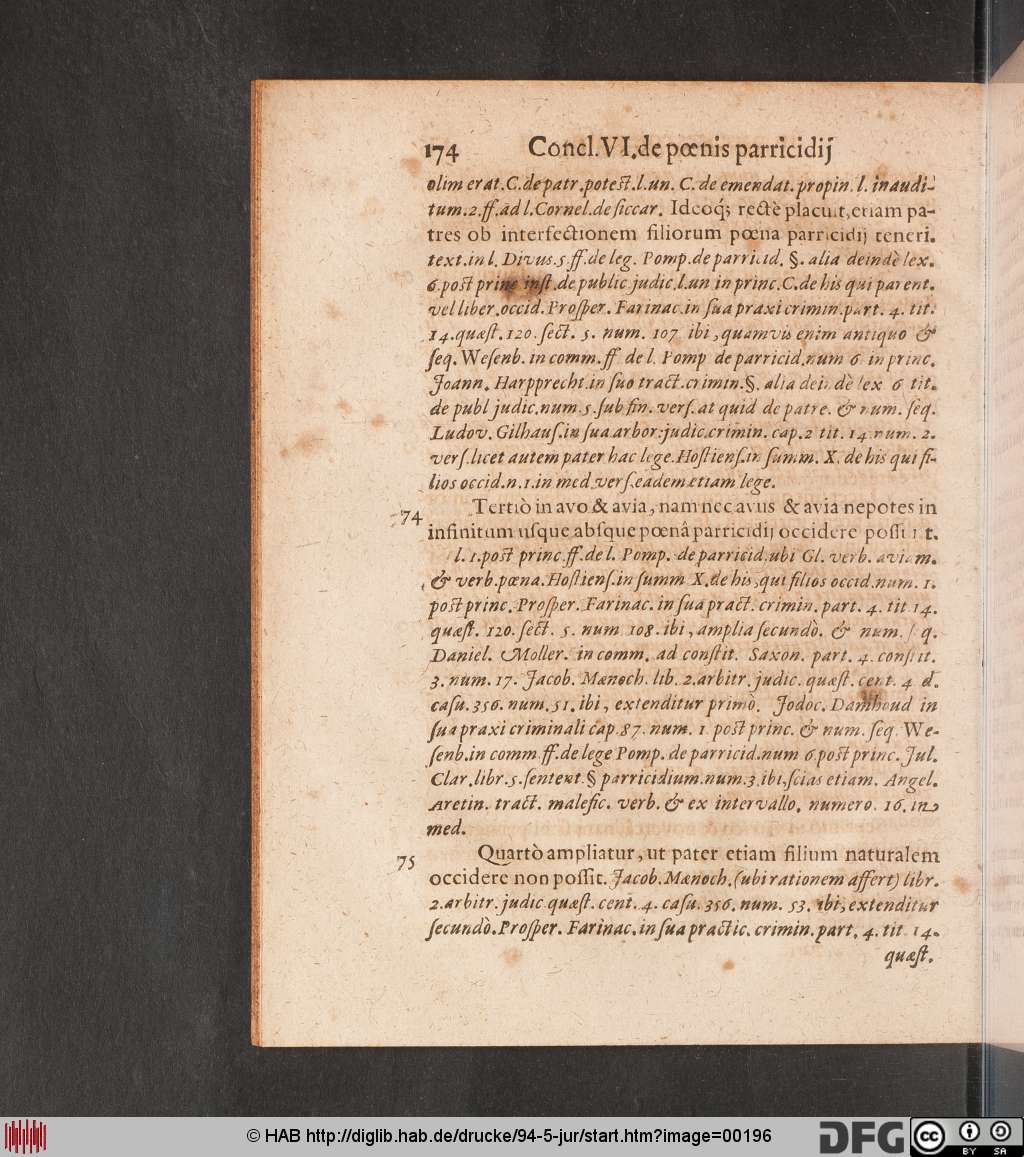 174 Concl. VI. de pœnis parricidij
olim erat. C. de patr. potest. l. un. C. de emendat. propin. l. inaudi-
tum. 2. ff. ad l. Cornel. de ſiccar. Ideoq́; rectè placuit, etiam pa-
tres ob interfectionem filiorum pœna parricidij teneri.
text. in l. Divus. 5. ff. de leg. Pomp. de parricid. §. alia deindè lex.
6. post princ inst. de public. judic. l. un in princ. C. de his qui parent.
vel liber. occid. Proſper. Farinac. in ſua praxi crimin. part. 4. tit.
14. quæſt. 120. ſect. 5. num. 107 ibi, quamvis enim antiquo &
ſeq. Weſenb. in comm. ff de l. Pomp de parricid. num 6 in princ.
Joann. Harpprecht. in ſuo tract. crimin. §. alia deindè lex 6 tit.
de publ judic. num. 5. ſub fin. verſ. at quid de patre. & num. ſeq.
Ludov. Gilhauſ. in ſua arbor. judic. crimin. cap. 2 tit. 14. num. 2.
verſ. licet autem pater hac lege. Hoſtienſ. in ſumm. X. de his qui fi-
lios occid. n. 1. in med verſ. eadem etiam lege.
Tertiò in avo & avia, nam nec avus & avia nepotes in
74 infinitum uſque abſque pœnâ parricidij occidere poſſunt.
l. 1. post princ. ff. de l. Pomp. de parricid. ubi Gl. verb. aviam.
& verb. pœna. Hoſtienſ. in ſumm X. de his, qui filios occid. num. 1.
post princ. Proſper. Farinac. in ſua pract. crimin. part. 4. tit 14.
quæſt. 120. ſect. 5. num 108. ibi, amplia ſecundò. & num. ſeq.
Daniel. Moller. in comm. ad conſtit. Saxon. part. 4. conſtit.
3. num. 17. Jacob. Mænoch. lib. 2. arbitr. judic. quæſt. cent. 4
caſu. 356. num. 51. ibi, extenditur primò. Jodoc. Damhoud in
ſua praxi criminali cap. 87. num. 1 post princ. & num. ſeq. We-
ſenb. in comm. ff. de lege Pomp. de parricid. num 6. post princ. Jul.
Clar. libr. 5. ſentent. § parricidium. num. 3. ibi, ſcias etiam. Angel.
Aretin. tract. malefic. verb. & ex intervallo. numero. 16. in
med.
75 Quartò ampliatur, ut pater etiam filium naturalem
occidere non poſſit. Jacob. Mænoch. (ubi rationem affert) libr.
2. arbitr. judic quæſt. cent. 4. caſu. 356. num. 53. ibi, extenditur
ſecundò. Proſper. Farinac. in ſua practic. crimin. part. 4. tit 14.
quæſt.
© HAB http://diglib.hab.de/drucke/94-5-jur/start.htm?image=00196
DFG cc BY SA